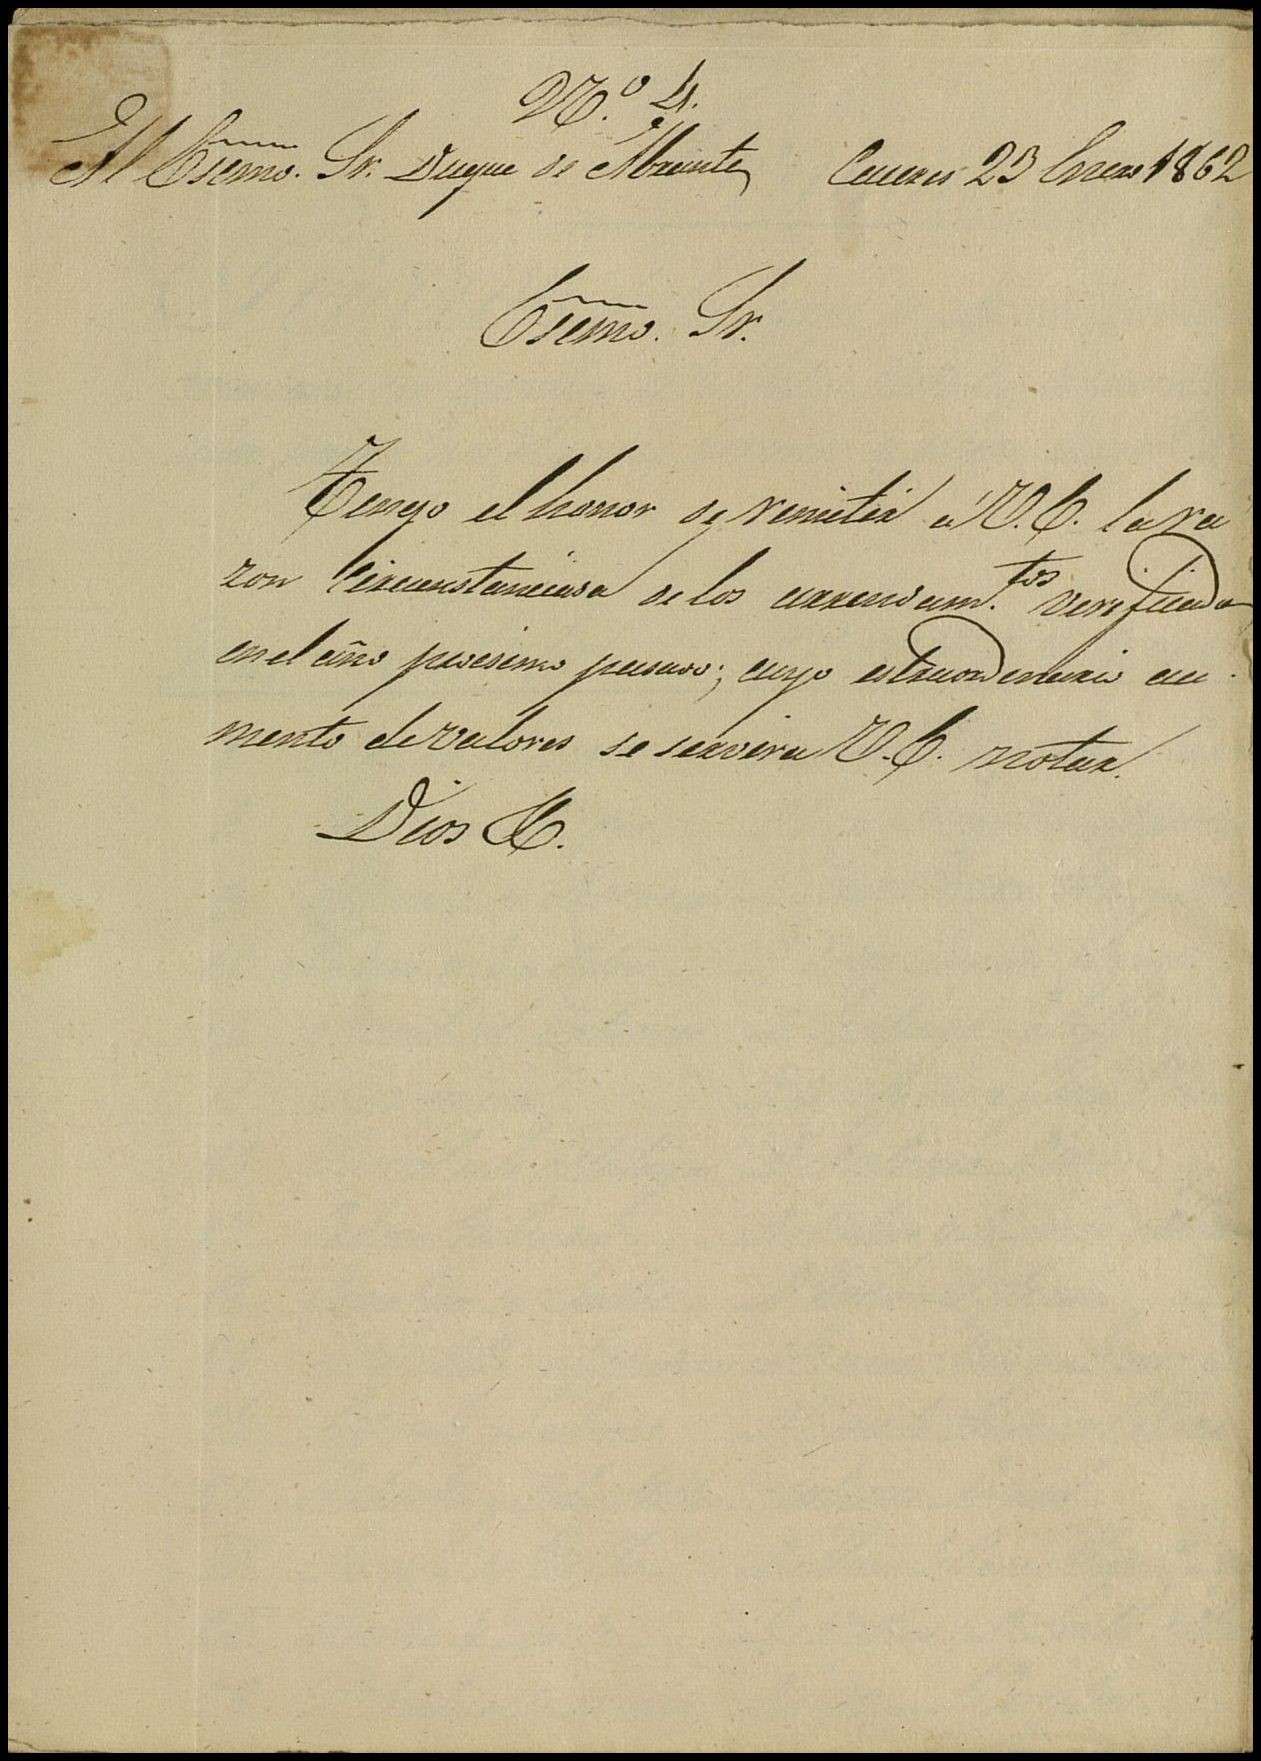 N.º 4.
Al Esemo. Sr. Duque de Abrantes Caceres 23 Enero 1862
Esemo. Sr.
Tengo el honor de remitir á V. E. la ra
zon circunstanciada de los arrendam.tos verificados
en el año procsimo pasado; cuyo estraordinario au
mento de valores se servira V. E. notar.
Dios &.